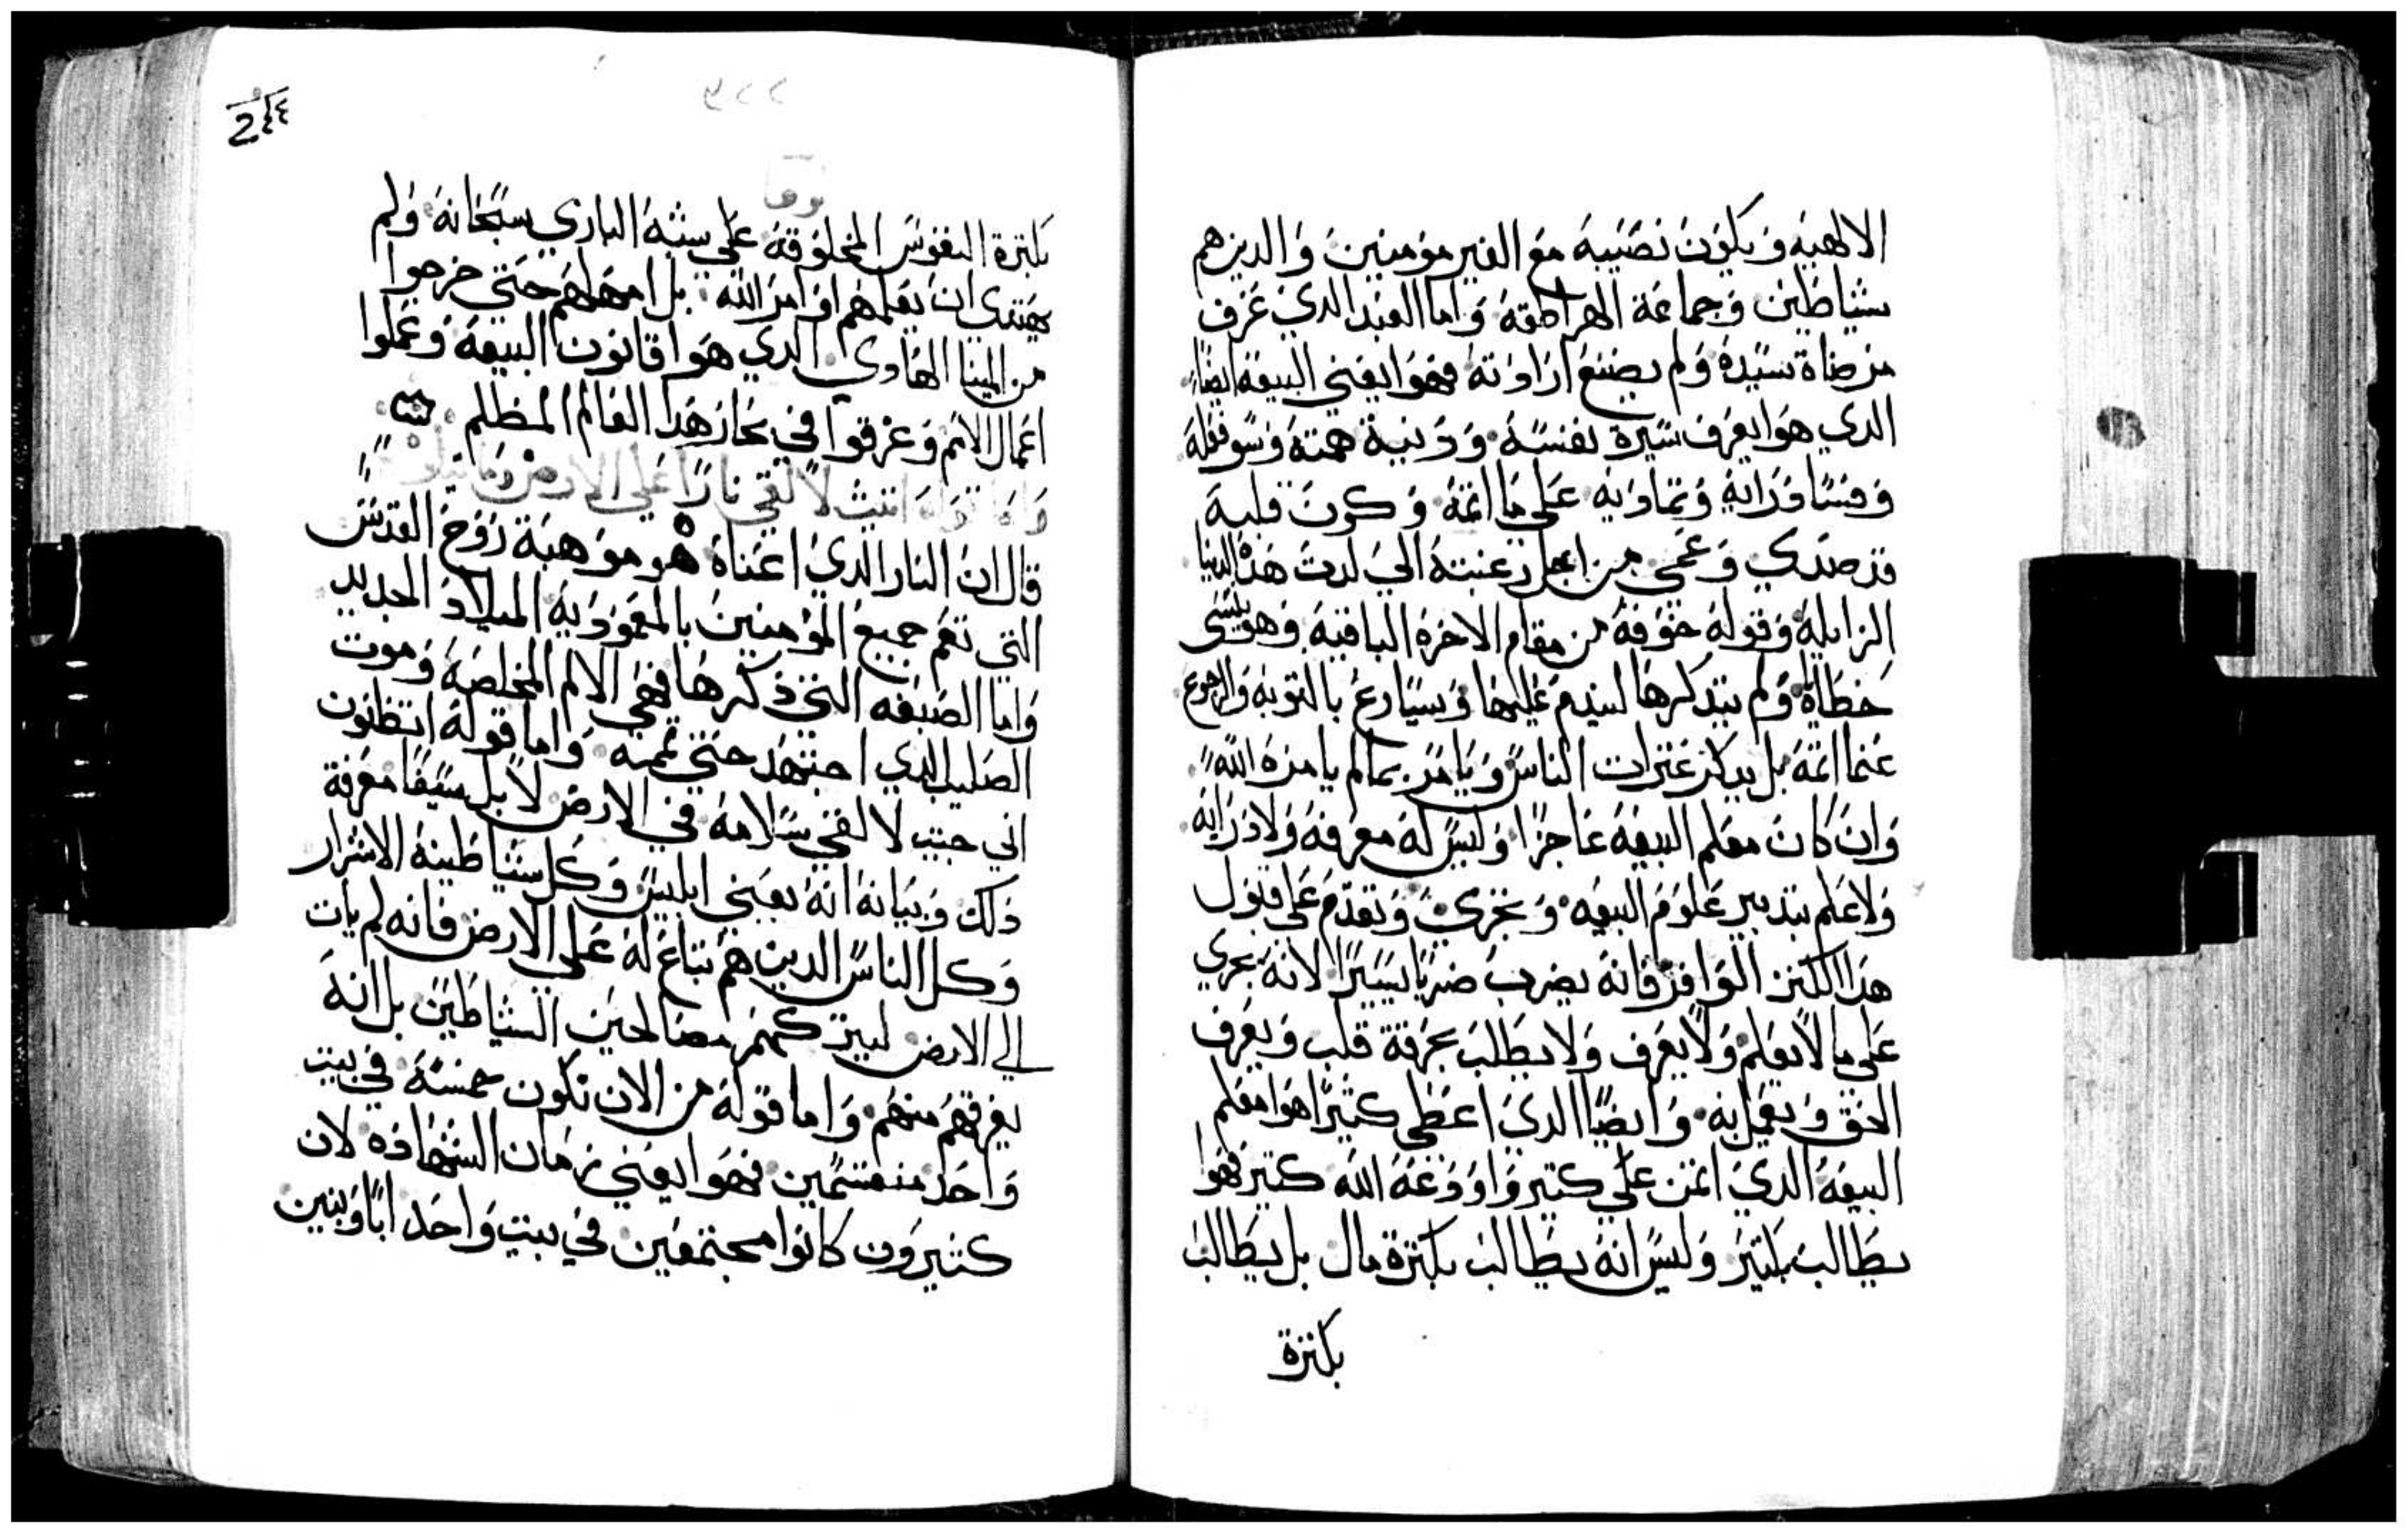 الالهيه وَيكوُن نصَيبهَ معَ الغير مومنين وَالدين هم
شياطين وَجماعَة الهراطقه وَاما العَبد الديَ عَرف
مرضاة سَيدهُ وَلم يصنعَ ارَاوَتهَ فهوَا يعَني البيعَة ايضًا
الدي هوَا يعَرف سَيرة نفسَهَ وَدَنية همتهَ وَسَو فعَلهَ
وَفسَاوَرَايهَ وَتماوَيه عَلي ما اثمهَ وَكون قلبهَ
قد صَدي وَعَمي من اجل رغبتهَ الي لدت هَدهْ الدنيا
الزايلهَ وَقولهَ خوَفهَ من مقام الاخرهَ الباقيهَ وَهو ينسَى
خطاياهَ وَلم يتدكرهَا ليندم عَليهَا وَيسَارعَ بالتوبهَ وَالرجوع
عَما اثمهَ بل يدكر عَترات الناسَ وَيامَر بما لم يامرهَ الله
وَان كان معَلم البيعَهَ عَاجزًا وَليسَ لهَ معرفهَ وَلا دَرَايهَ
وَلا عَلم بتدبير عَلوَم البيعَه وَيجري وَيتقدم عَلي قبول
هَدا الكنز الوَافر فانهَ يضرب ضربًا يسَيرًا لانهَ يجري
عَلي ما لا يعَلم وَلا يعَرف وَلا يطَلب بحرقة قلب وَيعَرف
الحق وَيعَمل بهَ وَايضًا الديَ اعطي كتيرًا هوَا معَلم
البيعَهَ الديَ اتمن عَلي كتير وَاوَدَعَهَ الله كتير فهوَا
يطَالب بكتير وَليسَ انهَ يطَالب بكترة مال بل يطَالب
بكترة
٣٢٢
2٤٤
بكترة النفوسَ المخلوَقهَ عَلي شبهَ الباري سَبحَانهَ وَلم
يهتدي ان يعَلمهم اوَامرَ الله بل امهَلهم حتي خرجوا
من المينا الهَادي الدي هوَا قانون البيعَهَ وَعَملوا
اعَمال الامم وَغرقوا في بحَار هَدا العَالم المظلم
وَاما قوَلهَ اتيت لالقي نارًا عَلي الارض وَما
قال ان النار الديَ اعَناهَ هو موَهبَة رَوَح القدسَ
التي تعَم جميع المؤمنين بالمعَموَدَيهَ الميلادَ الجديد
وَاما الصَبغه التي دكرهَا فهَي الالام المخلصَهَ وَموت
الصَليب الدي اجتهَد حتي تممهَ وَاما قولهَ اتظنون
اني جيت لالقي سَلامهَ في الارض لا بل سَيفًا معَرفة
دَلك وَبيَانهَ انهَ يعَني ابليسَ وَكل شياطينهَ الاشرار
وَكل الناسَ الدين هم تباعَ لهَ عَلي الارض فانهَ لم يات
الي الارض ليتركهَم مصَالحين الشياطَين بل انهَ
يفرقهَم منهَم وَاما قولهَ من الان تكون خمسَهَ في بيت
وَاحَد منقسَمين فهَوَا يعَني زمان الشهَادَه لان
كتيرَون كانوا مجتمعَين في بيت وَاحَد ابًا وَبنين